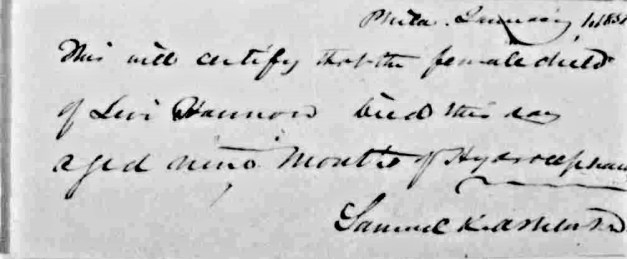 Phila. January 1, 183
This will certify that the female child
of Levi Hannon died this day
aged nine Months of Hydrocephalus
Samuel K. Ashton